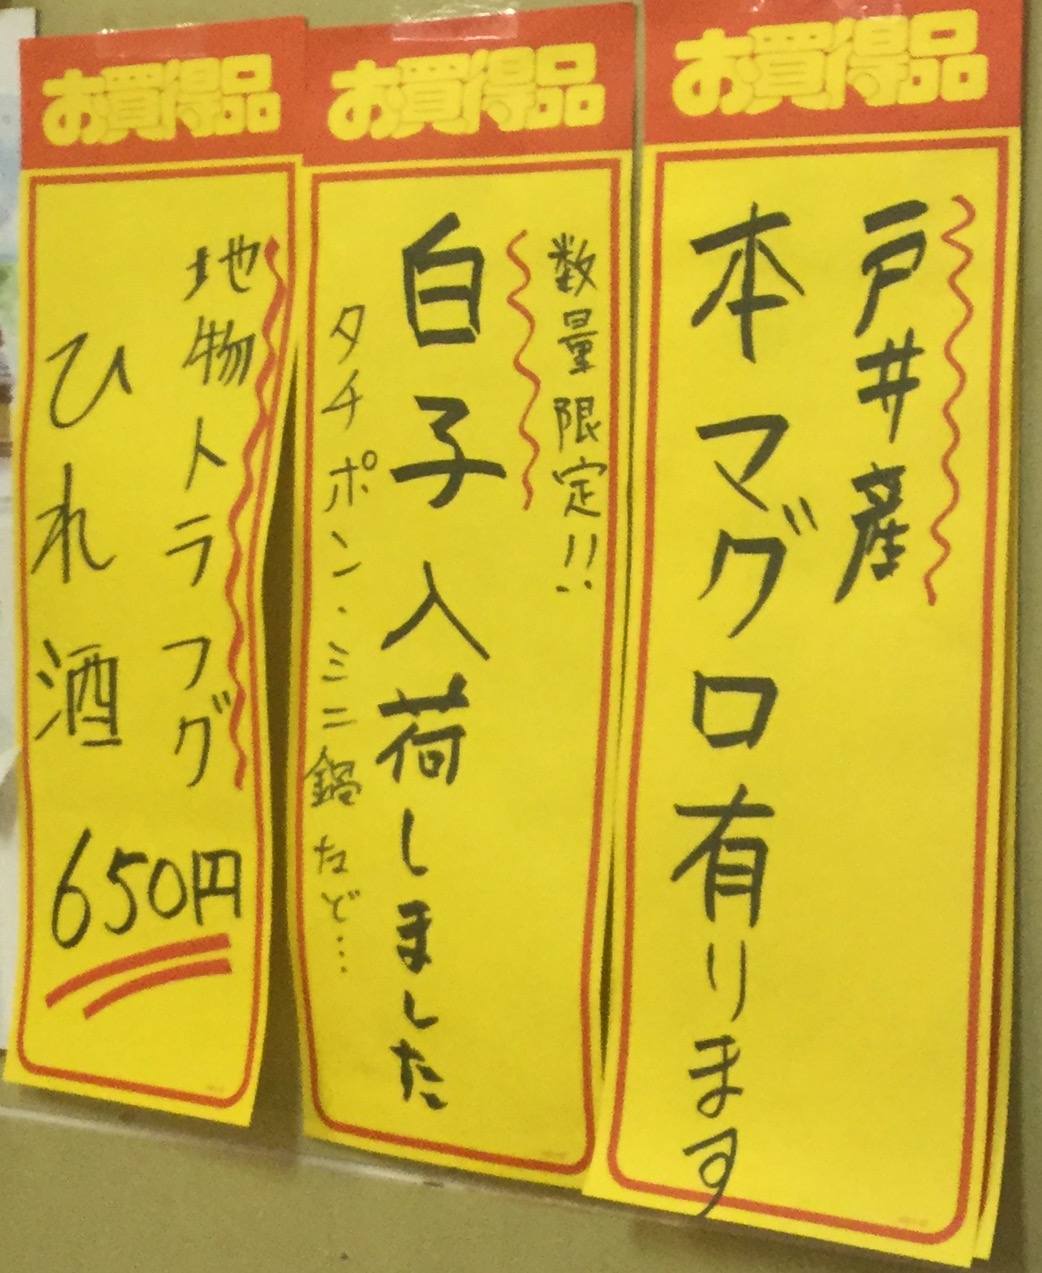 お買得品
戸井産
本マグロ有ります
お買得品
数量限定!!
白子入荷しました
タチポン・ミニ鍋など…
お買得品
地物トラフグ
ひれ酒
650円